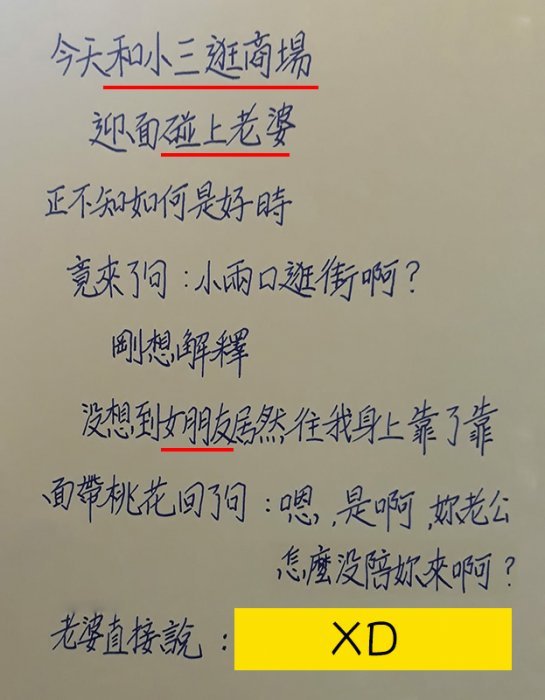 今天和小三逛商場
迎面碰上老婆
正不知如何是好時
竟來了句：小兩口逛街啊？
剛想解釋
沒想到女朋友居然往我身上靠了靠
面帶桃花回了句：嗯，是啊，妳老公
怎麼沒陪妳來啊？
老婆直接說：XD